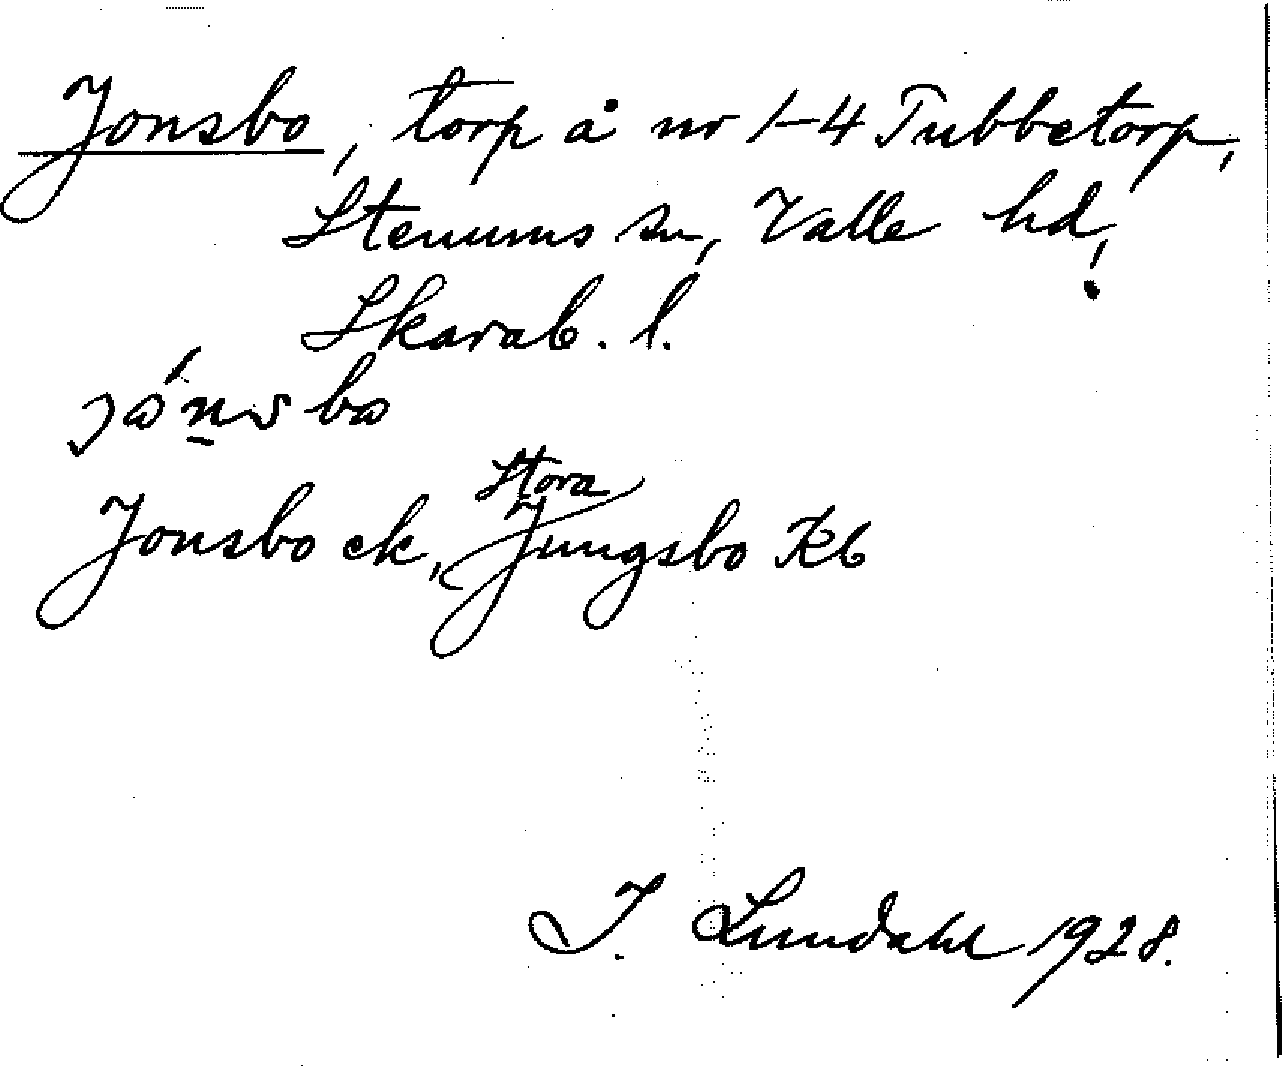 Jonsbo, torp å nr 1-4 Tubbetorp,
Stenums sn, Valle hd,
Skarab. l.
Stora
Jonsbo ek, Jungsbo Kb
I. Lundahl 1928.